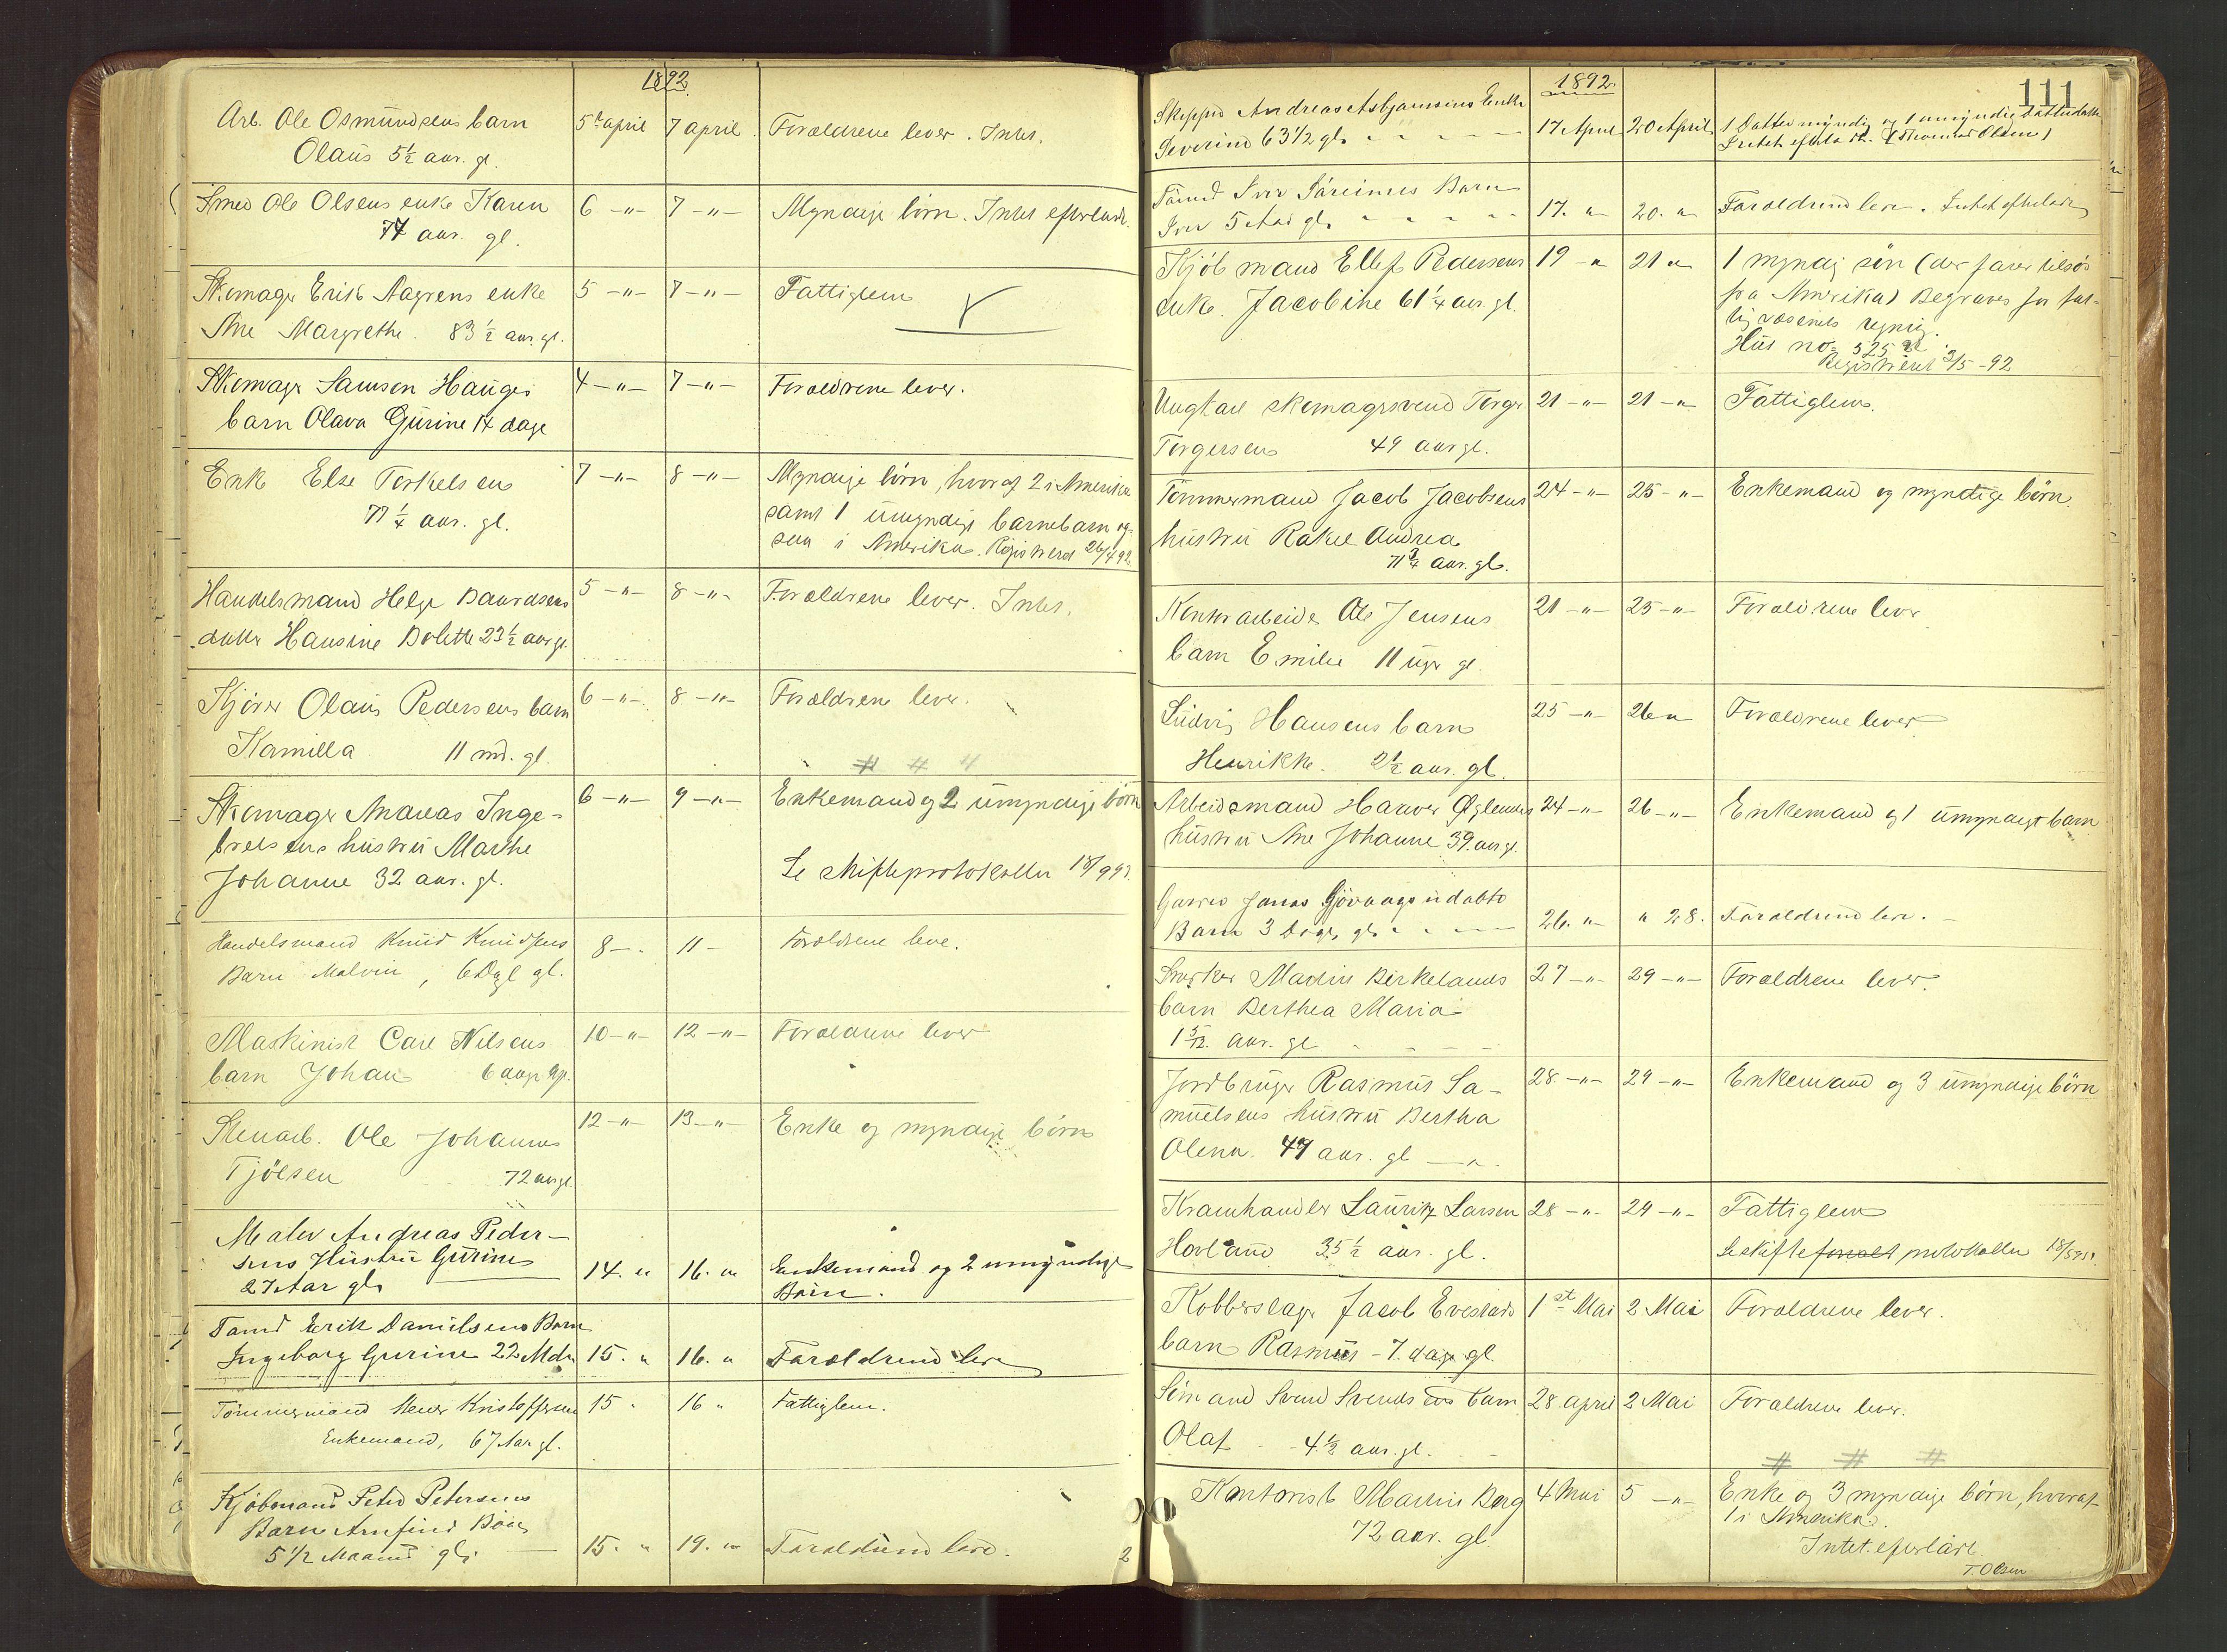 1892.
Arb. Ole Osmundsens barn 5te april 7 april. Forældrene lever. Intet.
Olaus 5½ aar. gl.
Smed Ole Olsens enke Karen 6 -"- 7 -"- Myndige börn. Intet efterladt.
77 aar. gl.
Skomager Erik Aagrens enke 5 -"- 7 -"- Fattiglem
Ane Margrethe. 83½ aar. gl.
Skomagr Samson Hauges 4 -"- 7 -"- Forældrene lever.
barn Olava Gurine 14 dage
Enke Else Torkelsens 7 -"- 8 -"- Myndige börn, hvoraf 2 i Amerika
77¼ aar. gl. samt 1 umyndigt barnebarn og-
saa i Amerika. Registreret 26/4 92.
Handelsmand Helge Baardsens 5 -"- 8 -"- Forældrene lever. Intet.
datter Hansine Bolette 23½ aar gl.
Kjører Olaus Pedersens barn 6 -"- 8 -"- Forældrene lever.
Kamilla 11 md. gl.
# # #
Skomager Andreas Inge- 6 -"- 9 -"- Enkemand og 2 umyndige börn
bretsens hustru Marthe
Johanne 32 aar. gl. Se skifteprotokollen 18/9 92.
Handelsmand Knud Knudsens 8 - 11 - Forældrene leve.
Barn Malvin, 6 Dage gl.
Maskinist Carl Nilsens 10 -"- 12 -"- Forældrene lever
barn Johan 6 aar. gl.
Stenarb. Ole Johannes 12 -"- 13 -"- Enke og myndige börn
Tjölsen 72 aar gl.
Maler Andreas Peder-
sens Hustru Gurine
27 Aar gl. 14. " 16. " Enkemand og 2 umyndige
Börn.
Tømd Erik Danielsens Barn
Ingeborg Gurine 22 Mdr 15. " 16. " Forældrene leve
Tömmermand Kristoffersen 15 " 16 " Fattiglem.
Enkemand, 67 Aar gl.
Kjöbmand Peter Petersens
Barn Arnfind
5 1/2 Maaned gl. 15. " 19. " Forældrene leve.
2
111
1892.
Skipper Andreas Asbjørnsens Enke
Severine 63 1/2 gl. 17 April 20 April 1 Datter myndig og 1 umyndig Datterdatter
Intet efterladt. (Thomas Olsen)
Tømd Iver Barn
Iver 5 Aar gl. 17. " 20. " Forældrene leve. Intet efterladt
Kjöbmand Ellef Pedersens 19 -" 21 " 1 myndig sön (der farer tilsös
enke. Jacobine 61¼ aar. gl. fra Amerika) Begraves for fat-
tigvæsenets regnig.
Hus no 525
Registreret 3/5-92
Ungkarl skomagersvend Torger 21 -"- 21 -"- Fattiglem.
Torgersens 49 aar gl.
Tömmermand Jacob Jacobsens 24 -"- 25 -"- Enkemand og myndige börn.
hustru Rakel Andrea
71¾ aar. gl.
Kontorarbeider Ole Jensens 21 -"- 25 -"- Forældrene lever
barn Emilie 11 uger gl.
Ludvig Hansens barn 25 -"- 26 " Forældrene lever
Henrikke. 2½ aar. gl.
Arbeidsmand Haaver Öglendes 24 -"- 26 -"- Enkemand og 1 umyndigt barn
hustru Ane Johanne 39. aar gl.
Garver Jonas Gjövaags udöbte
Barn 3 Dage gl. 26. " " 28. Forældrene leve.
Snekker Martin Birkelands 27 -"- 29 -"- Forældrene lever.
barn Berthea Maria
1 5/12. aar. gl
Jordbruger Rasmus Sa- 28 -"- 29 -"- Enkemand og 3 umyndige börn
muelsens hustru Bertha
Olena. 47 aar. gl
Kramhandler Lauritz Larsen 28 -"- 29 -"- Fattiglem
Hovland 35½ aar. gl. Se skifte protokollen 18/5 92.
Kobberslager Jacob Evestads 1st Mai 2 Mai Forældrene lever.
barn Rasmus - 7. dage gl.
Sömand Svend Svendsens barn 28. april 2 Mai Forældrene lever.
Olaf - 4½ aar. gl.
# # #
Kontorist Martin Berg 4 Mai 5 -"- Enke og 3 myndige börn, hvoraf
72 aar. gl. 1 i Amerika.
Intet efterladt
T. Olsen